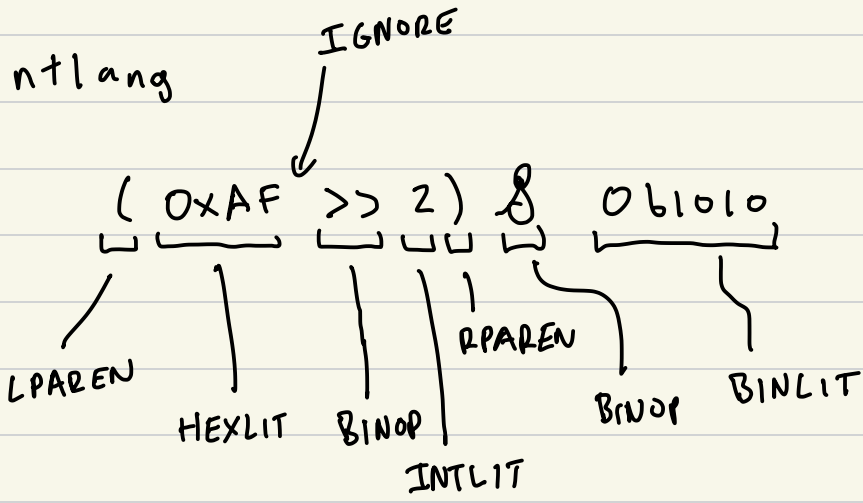 IGNORE
ntlang
( 0xAF >> 2 ) & 0b1010
LPAREN
HEXLIT
BINOP
INTLIT
RPAREN
BINOP
BINLIT